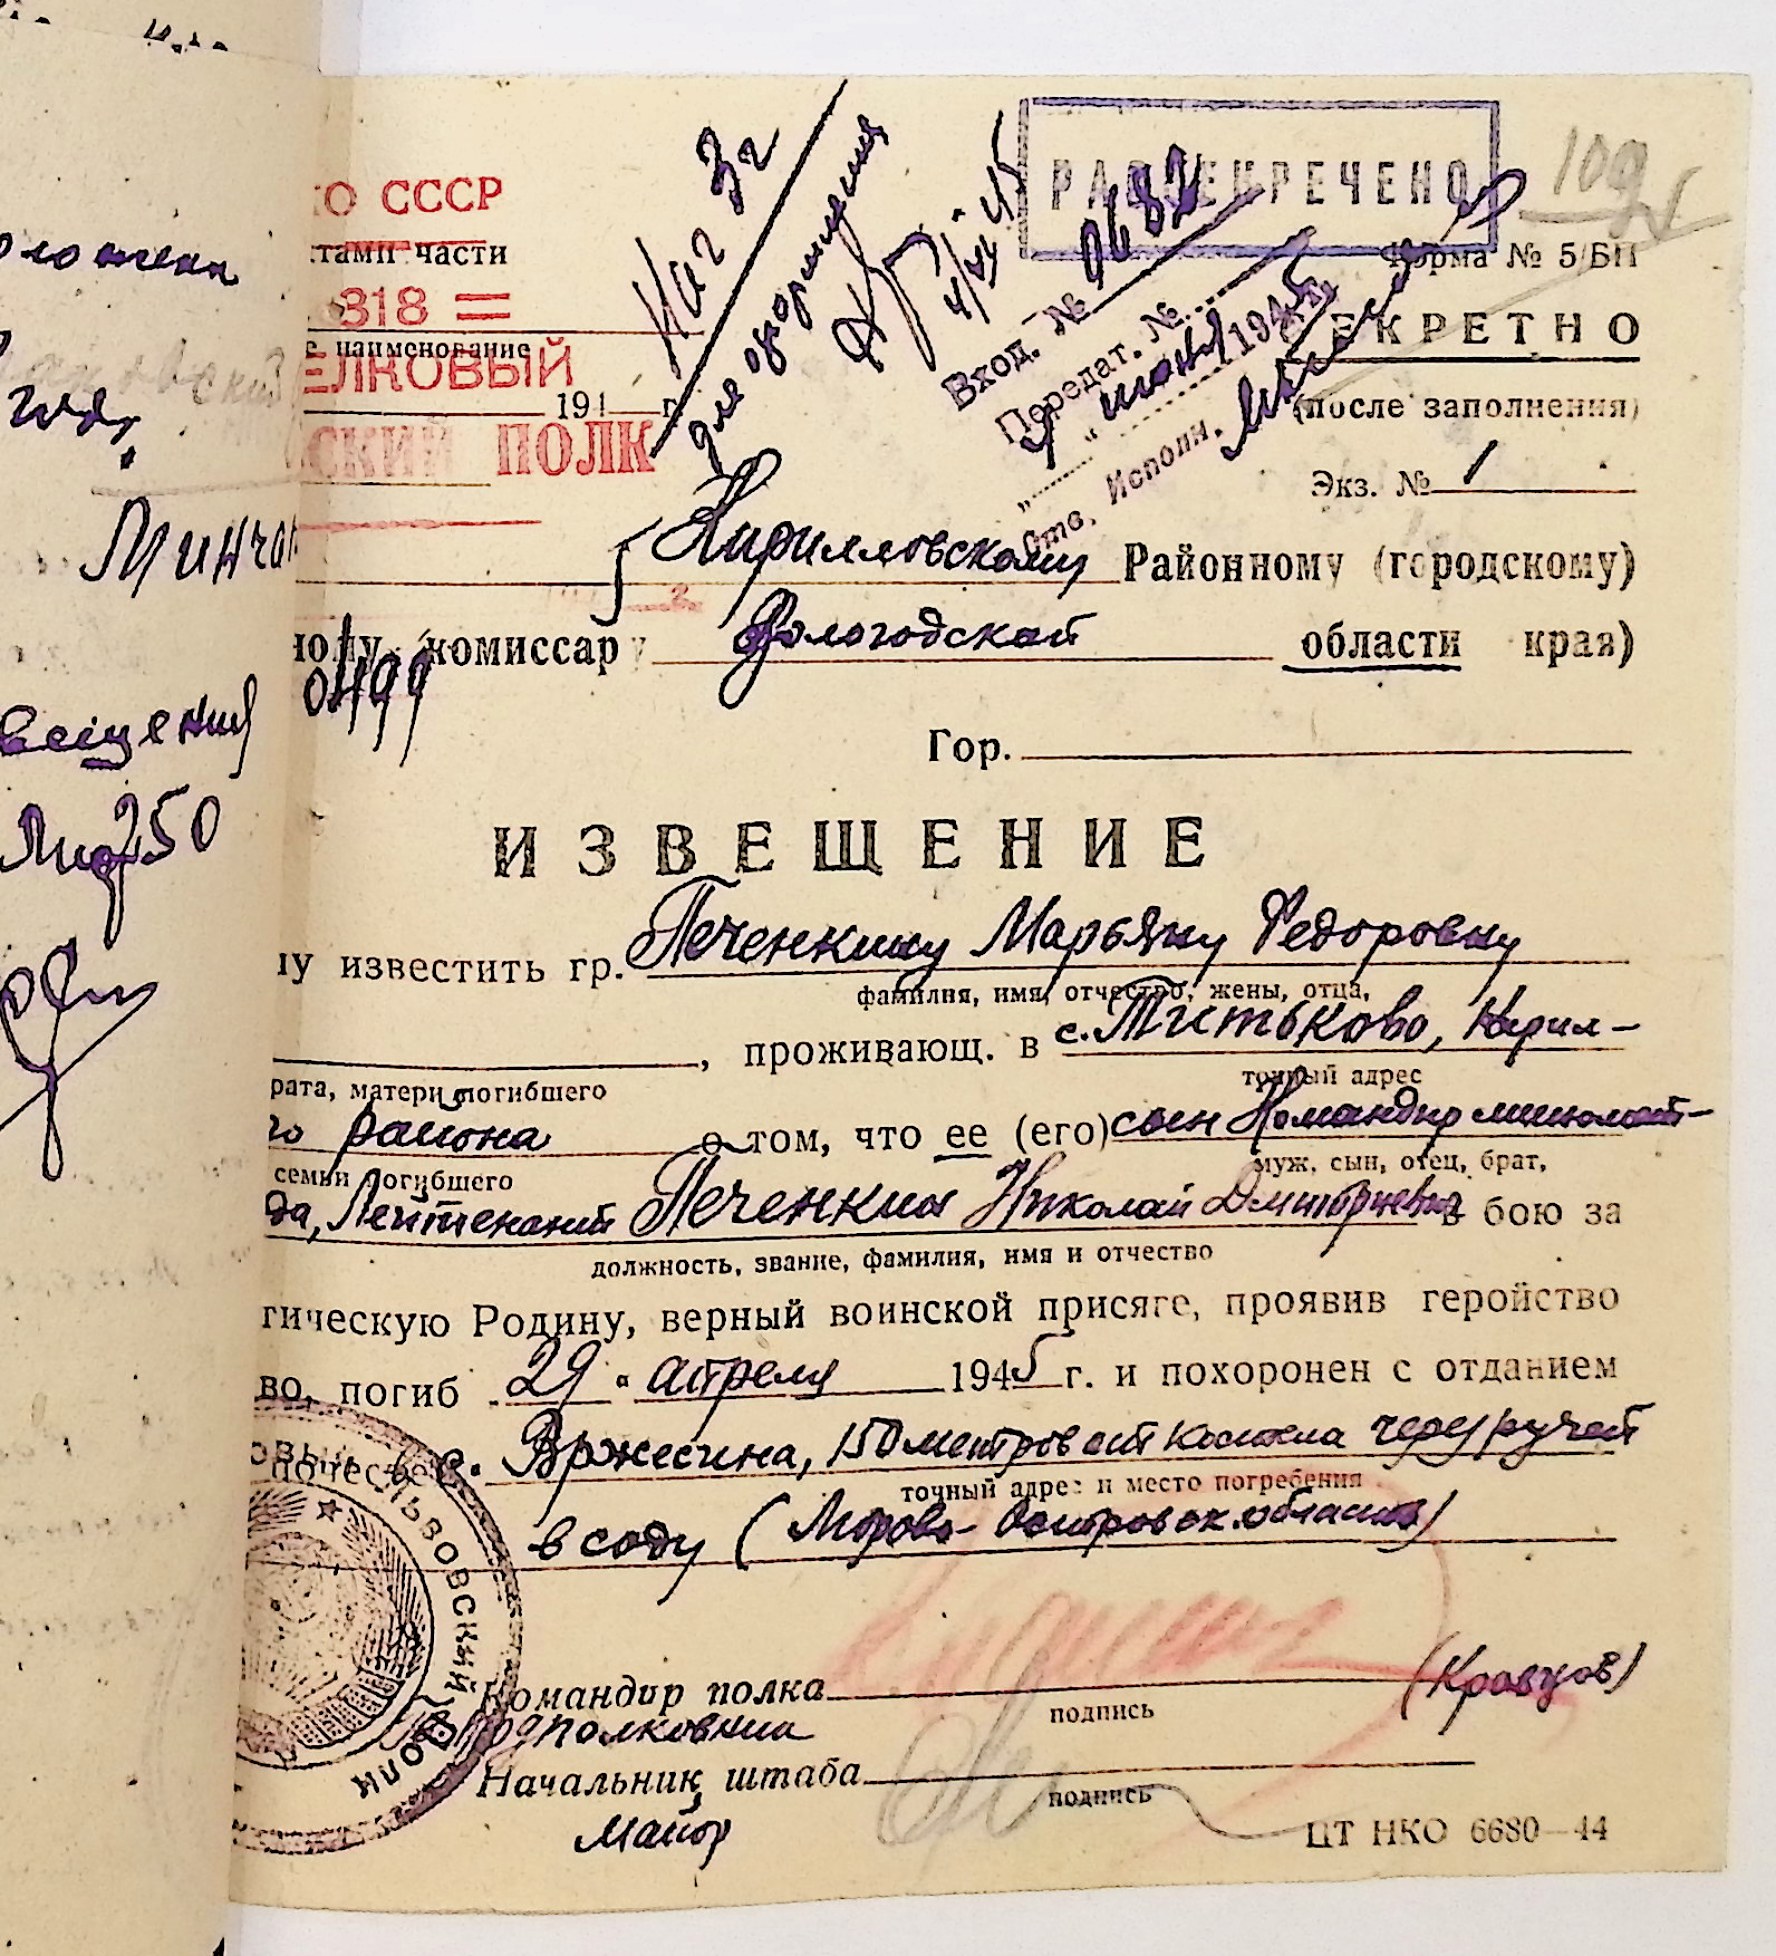 О СССР
РАССЕКРЕЧЕНО
109
тами части
318 =
наименование
ЕЛКОВЫЙ
194 г.
СКИЙ ПОЛК
Наг 3г
для оформления
4/VI-45
Вход. № 0682
Передат. №
4 июня 1945 г.
Отв. Исполн.
Форма № 5/БП
СЕКРЕТНО
(после заполнения)
Экз. № 1
Кирилловскому Районному (городскому)
ному комиссару Вологодской области края)
0499
Гор.
ИЗВЕЩЕНИЕ
му известить гр. Печенкину Марьяну Федоровну
фамилия, имя, отчество, жены, отца,
, проживающ. в с. Титьково, Кирил-
рата, матери погибшего
точный адрес
го района о том, что ее (его) сын Командир миномет-
семьи погибшего
муж, сын, отец, брат,
да, Лейтенант Печенкин Николай Дмитриевич в бою за
должность, звание, фамилия, имя и отчество
тическую Родину, верный воинской присяге, проявив геройство
во, погиб 29 апреля 1945 г. и похоронен с отданием
почестей с. Вржесина, 150 метров от костела через ручей
точный адрес и место погребения
в саду (Морово-Островск. область)
Командир полка (Кравцов)
подпись
Подполковник
Начальник штаба
подпись
Майор
ЦТ НКО 6680—44
ЛЬВОВСКИЙ
ПОЛК
вещения
250